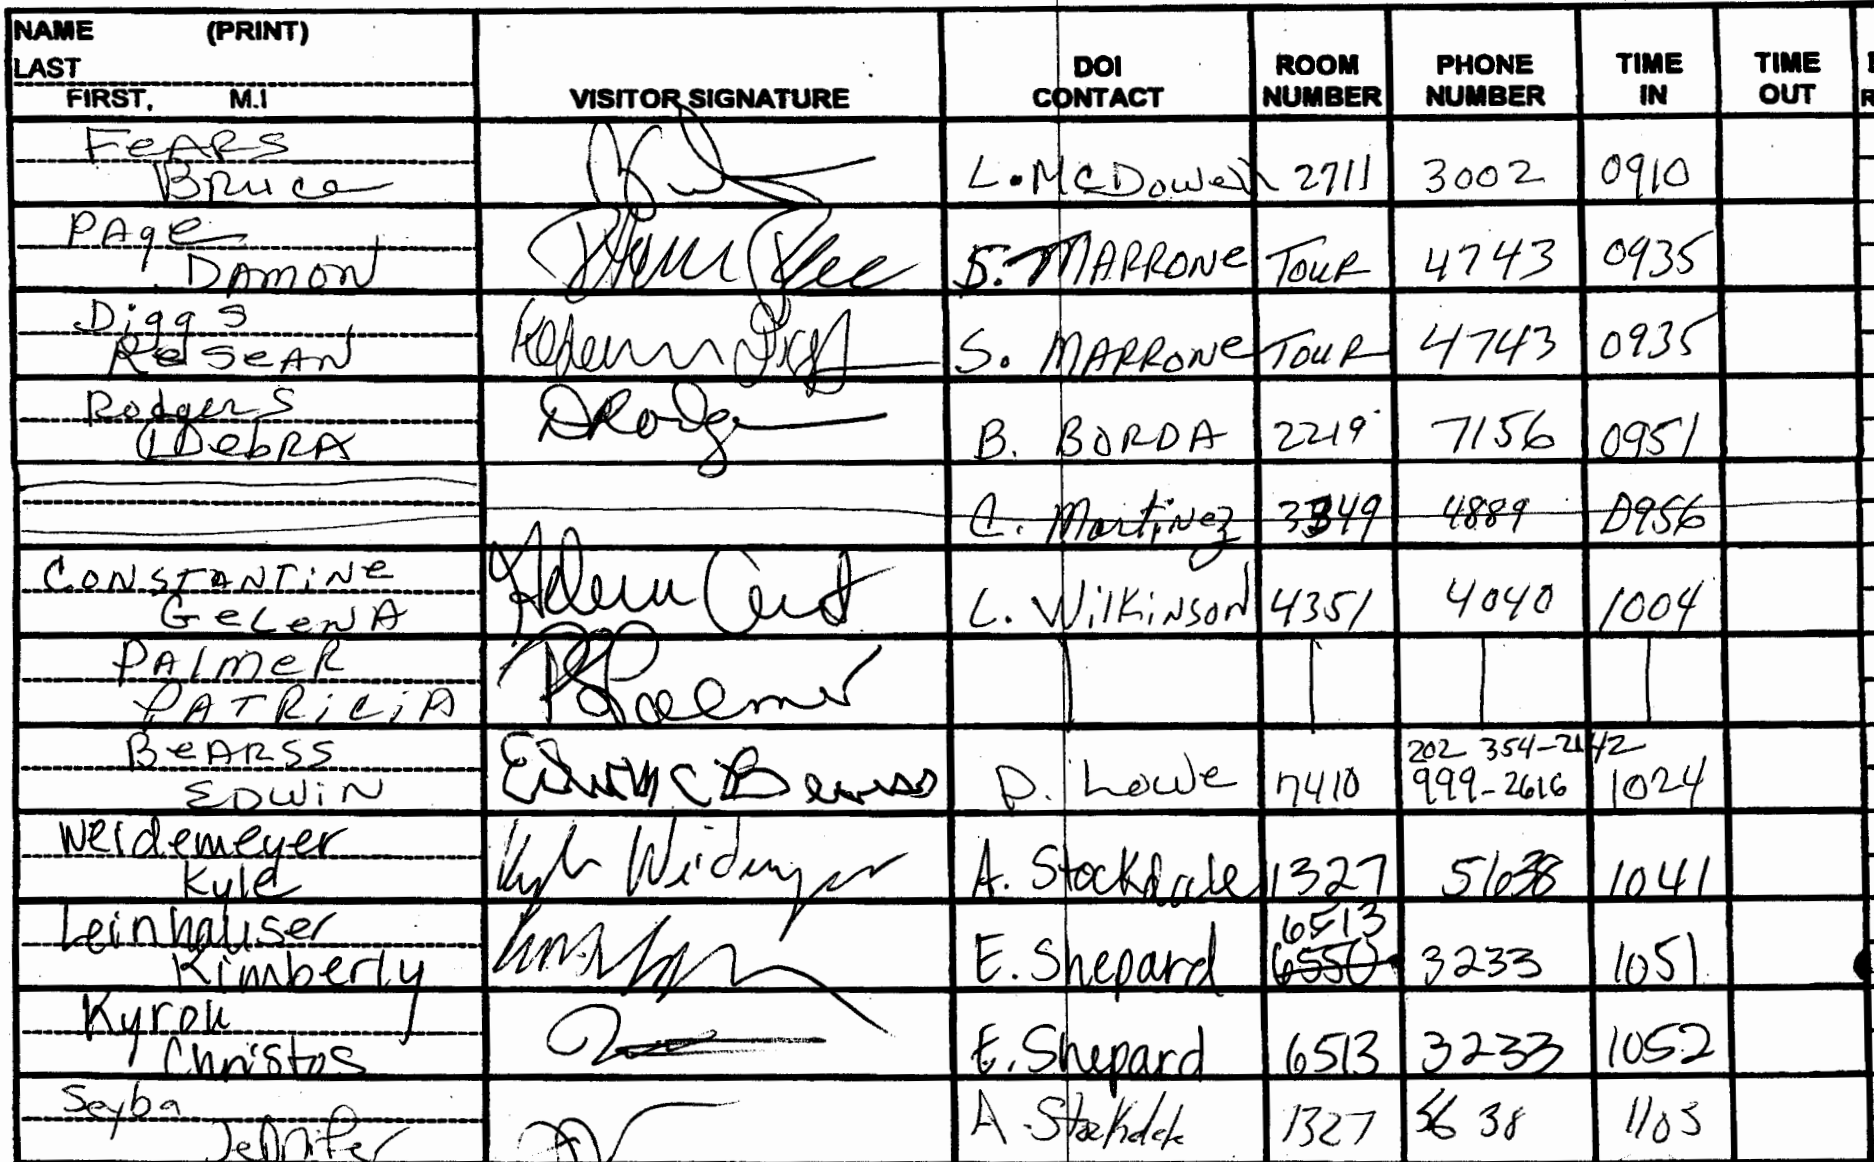 NAME (PRINT)
LAST
FIRST, M.I
VISITOR SIGNATURE
DOI CONTACT
ROOM NUMBER
PHONE NUMBER
TIME IN
TIME OUT
FeARS
Bruce
L. McDowell 2711 3002 0910
PAge
DAMON
S. MARRONe TouR 4743 0935
Diggs
ReSeAN
S. MARRONe TouR 4743 0935
RodgerS
DebRA
DRodge
B. BORDA 2219 7156 0951
C. Martinez 3349 4889 0956
CONSTANTiNe
GeLeNA
L. Wilkinson 4351 4040 1004
PAlmeR
PATRiciA
BeARSS
EDWiN
Edwin C Bearss
D. Lowe 7410 202 354-2142 999-2616 1024
Weidemeyer
Kyle
Kyle Weidemeyer
A. Stockdale 1327 5638 1041
Leinhauser
Kimberly
E. Shepard 6513 6550 3233 1051
Kyrou
Christos
E. Shepard 6513 3233 1052
Seyba
Jennifer
A. Stockdale 1327 5638 1103